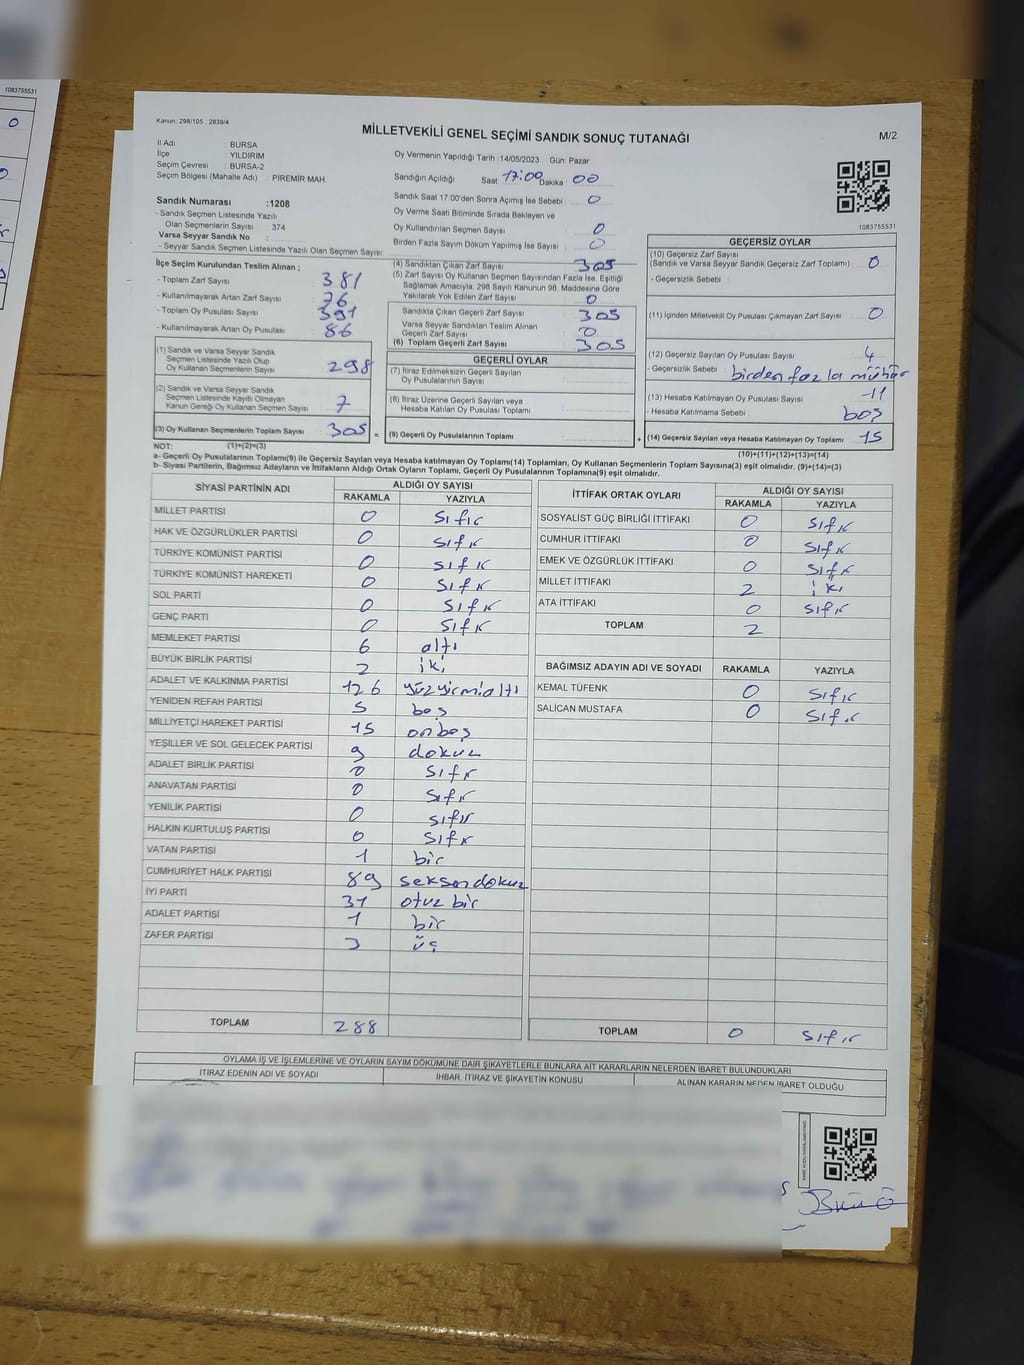 1083755531
0
Kanun: 298/105 , 2839/4
MİLLETVEKİLİ GENEL SEÇİMİ SANDIK SONUÇ TUTANAĞI
M/2
İl Adı : BURSA
İlçe : YILDIRIM
Seçim Çevresi : BURSA-2
Seçim Bölgesi (Mahalle Adı) : PİREMİR MAH
Oy Vermenin Yapıldığı Tarih :14/05/2023 Gün: Pazar
Sandığın Açıldığı Saat: 17:00 Dakika : 00
Sandık Saat 17.00'den Sonra Açımış İse Sebebi : 0
Oy Verme Saati Bitiminde Sırada Bekleyen ve
Oy Kullandırılan Seçmen Sayısı : 0
Birden Fazla Sayım Döküm Yapılmış İse Sayısı : 0
1083755531
Sandık Numarası :1208
- Sandık Seçmen Listesinde Yazılı
Olan Seçmenlerin Sayısı : 374
Varsa Seyyar Sandık No :
- Seyyar Sandık Seçmen Listesinde Yazılı Olan Seçmen Sayısı:
İlçe Seçim Kurulundan Teslim Alınan ;
- Toplam Zarf Sayısı : 381
- Kullanılmayarak Artan Zarf Sayısı : 76
- Toplam Oy Pusulası Sayısı : 391
- Kullanılmayarak Artan Oy Pusulası : 86
(1) Sandık ve Varsa Seyyar Sandık
Seçmen Listesinde Yazılı Olup
Oy Kullanan Seçmenlerin Sayısı : 298
(2) Sandık ve Varsa Seyyar Sandık
Seçmen Listesinde Kayıtlı Olmayan
Kanun Gereği Oy Kullanan Seçmen Sayısı : 7
(3) Oy Kullanan Seçmenlerin Toplam Sayısı : 305 =
(4) Sandıktan Çıkan Zarf Sayısı : 305
(5) Zarf Sayısı Oy Kullanan Seçmen Sayısından Fazla İse, Eşitliği
Sağlamak Amacıyla, 298 Sayılı Kanunun 98. Maddesine Göre
Yakılarak Yok Edilen Zarf Sayısı : 0
Sandıkta Çıkan Geçerli Zarf Sayısı : 305
Varsa Seyyar Sandıktan Teslim Alınan
Geçerli Zarf Sayısı : 0
(6) Toplam Geçerli Zarf Sayısı : 305
GEÇERLİ OYLAR
(7) İtiraz Edilmeksizin Geçerli Sayılan
Oy Pusulalarının Sayısı :
(8) İtiraz Üzerine Geçerli Sayılan veya
Hesaba Katılan Oy Pusulası Toplamı :
(9) Geçerli Oy Pusulalarının Toplamı : +
GEÇERSİZ OYLAR
(10) Geçersiz Zarf Sayısı
(Sandık ve Varsa Seyyar Sandık Geçersiz Zarf Toplamı) : 0
- Geçersizlik Sebebi :
(11) İçinden Milletvekili Oy Pusulası Çıkmayan Zarf Sayısı : 0
(12) Geçersiz Sayılan Oy Pusulası Sayısı : 4
- Geçersizlik Sebebi : birden fazla mühür
(13) Hesaba Katılmayan Oy Pusulası Sayısı : 11
- Hesaba Katılmama Sebebi : boş
(14) Geçersiz Sayılan veya Hesaba Katılmayan Oy Toplamı : 15
NOT: (1)+(2)=(3)
(10)+(11)+(12)+(13)=(14)
a- Geçerli Oy Pusulalarının Toplamı(9) ile Geçersiz Sayılan veya Hesaba katılmayan Oy Toplamı(14) Toplamları, Oy Kullanan Seçmenlerin Toplam Sayısına(3) eşit olmalıdır. (9)+(14)=(3)
b- Siyasi Partilerin, Bağımsız Adayların ve İttifakların Aldığı Ortak Oyların Toplamı, Geçerli Oy Pusulalarının Toplamına(9) eşit olmalıdır.
SİYASİ PARTİNİN ADI
ALDIĞI OY SAYISI
RAKAMLA YAZIYLA
MİLLET PARTİSİ 0 sıfır
HAK VE ÖZGÜRLÜKLER PARTİSİ 0 sıfır
TÜRKİYE KOMÜNİST PARTİSİ 0 sıfır
TÜRKİYE KOMÜNİST HAREKETİ 0 sıfır
SOL PARTİ 0 sıfır
GENÇ PARTİ 0 sıfır
MEMLEKET PARTİSİ 6 altı
BÜYÜK BİRLİK PARTİSİ 2 iki
ADALET VE KALKINMA PARTİSİ 126 yüzyirmialtı
YENİDEN REFAH PARTİSİ 5 beş
MİLLİYETÇİ HAREKET PARTİSİ 15 onbeş
YEŞİLLER VE SOL GELECEK PARTİSİ 9 dokuz
ADALET BİRLİK PARTİSİ 0 sıfır
ANAVATAN PARTİSİ 0 sıfır
YENİLİK PARTİSİ 0 sıfır
HALKIN KURTULUŞ PARTİSİ 0 sıfır
VATAN PARTİSİ 1 bir
CUMHURİYET HALK PARTİSİ 89 seksendokuz
İYİ PARTİ 31 otuz bir
ADALET PARTİSİ 1 bir
ZAFER PARTİSİ 3 üç
TOPLAM 288
İTTİFAK ORTAK OYLARI
ALDIĞI OY SAYISI
RAKAMLA YAZIYLA
SOSYALİST GÜÇ BİRLİĞİ İTTİFAKI 0 sıfır
CUMHUR İTTİFAKI 0 sıfır
EMEK VE ÖZGÜRLÜK İTTİFAKI 0 sıfır
MİLLET İTTİFAKI 2 iki
ATA İTTİFAKI 0 sıfır
TOPLAM 2
BAĞIMSIZ ADAYIN ADI VE SOYADI RAKAMLA YAZIYLA
KEMAL TÜFENK 0 sıfır
SALİCAN MUSTAFA 0 sıfır
TOPLAM 0 sıfır
OYLAMA İŞ VE İŞLEMLERİNE VE OYLARIN SAYIM DÖKÜMÜNE DAİR ŞİKAYETLERLE BUNLARA AİT KARARLARIN NELERDEN İBARET BULUNDUKLARI
İTİRAZ EDENİN ADI VE SOYADI İHBAR, İTİRAZ VE ŞİKAYETİN KONUSU ALINAN KARARIN NEDEN İBARET OLDUĞU